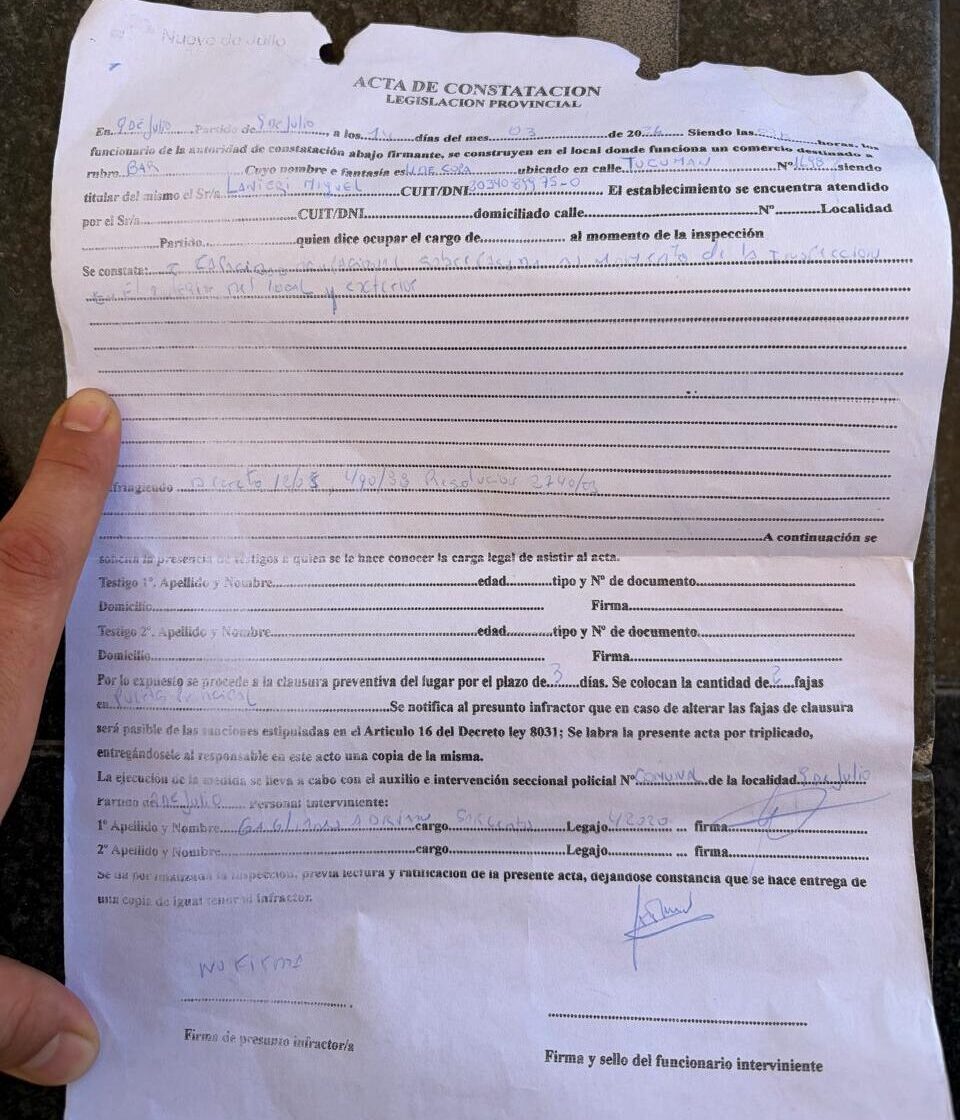 Nueve de Julio
ACTA DE CONSTATACION
LEGISLACION PROVINCIAL
En 9 DE Julio Partido de 9 DE Julio, a los 14 días del mes 03 de 2026 Siendo las horas, los
funcionario de la autoridad de constatación abajo firmante, se construyen en el local donde funciona un comercio destinado a
rubro BAR Cuyo nombre e fantasía es ubicado en calle TUCUMAN Nº 1698 siendo
titular del mismo el Sr/a MIGUEL CUIT/DNI El establecimiento se encuentra atendido
por el Sr/a CUIT/DNI domiciliado calle Nº Localidad
Partido quien dice ocupar el cargo de al momento de la inspección
Se constata: al momento de la Inspección
del local y exterior
fringiendo Decreto 12/05, 490/98 Resolucion 2740/03
A continuación se
solicita la presencia de testigos a quien se le hace conocer la carga legal de asistir al acta.
Testigo 1º. Apellido y Nombre edad tipo y Nº de documento
Domicilio Firma
Testigo 2º. Apellido y Nombre edad tipo y Nº de documento
Domicilio Firma
Por lo expuesto se procede a la clausura preventiva del lugar por el plazo de 3 días. Se colocan la cantidad de 2 fajas
en Puerta Principal Se notifica al presunto infractor que en caso de alterar las fajas de clausura
será pasible de las sanciones estipuladas en el Articulo 16 del Decreto ley 8031; Se labra la presente acta por triplicado,
entregándosele al responsable en este acto una copia de la misma.
La ejecución de la medida se lleva a cabo con el auxilio e intervención seccional policial Nº COMUNAL de la localidad 9 DE Julio
Partido de 9 DE Julio Personal Interviniente:
1º Apellido y Nombre ADRIAN cargo SARGENTO Legajo firma
2º Apellido y Nombre cargo Legajo firma
Se da por finalizada la inspección, previa lectura y ratificación de la presente acta, dejándose constancia que se hace entrega de
una copia de igual tenor al infractor.
NO FIRMA
Firma de presunto infractor/a
Firma y sello del funcionario interviniente